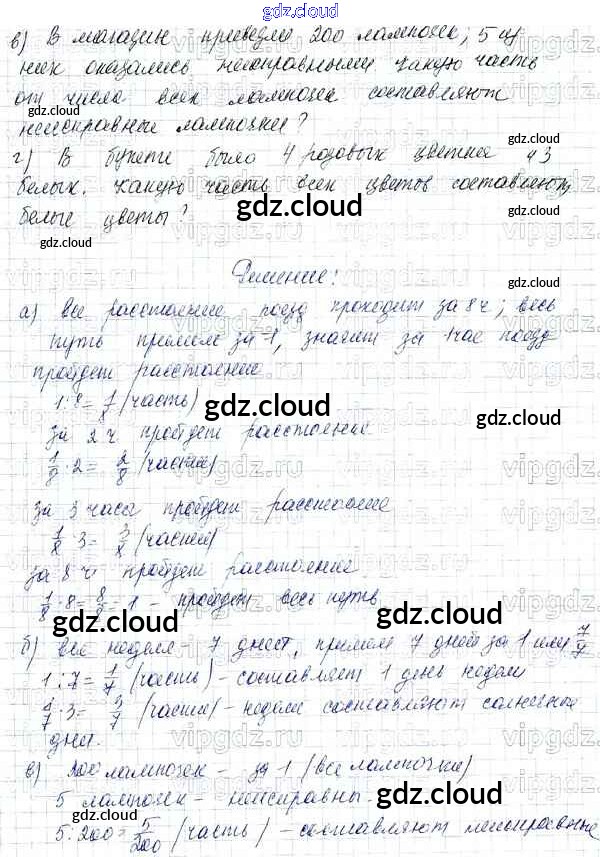 gdz.cloud
в) В магазин привезли 200 лампочек, 5 из
них оказались неисправными. Какую часть
от числа всех лампочек составляют
неисправные лампочки?
г) В букете было 4 розовых цветка и 3
белых. Какую часть всех цветов составляют
белые цветы?
Решение:
а) все расстояние поезд проходит за 8 ч; весь
путь примем за 1, значит за 1 час поезд
пройдет расстояние
1:8= 1/8 (часть)
за 2 ч пройдет расстояние
1/8 · 2 = 2/8 (частей)
за 3 часа пройдет расстояние
1/8 · 3 = 3/8 (частей)
за 8 ч пройдет расстояние
1/8 · 8 = 8/8 = 1 - пройдет весь путь
б) вся неделя - 7 дней, примем 7 дней за 1 или 7/7
1:7= 1/7 (часть) - составляет 1 день недели
1/7 · 3 = 3/7 (части) - недели составляют солнечные
дни.
в) 200 лампочек - за 1 (все лампочки)
5 лампочек - неисправны.
5:200= 5/200 (часть) - составляют неисправные